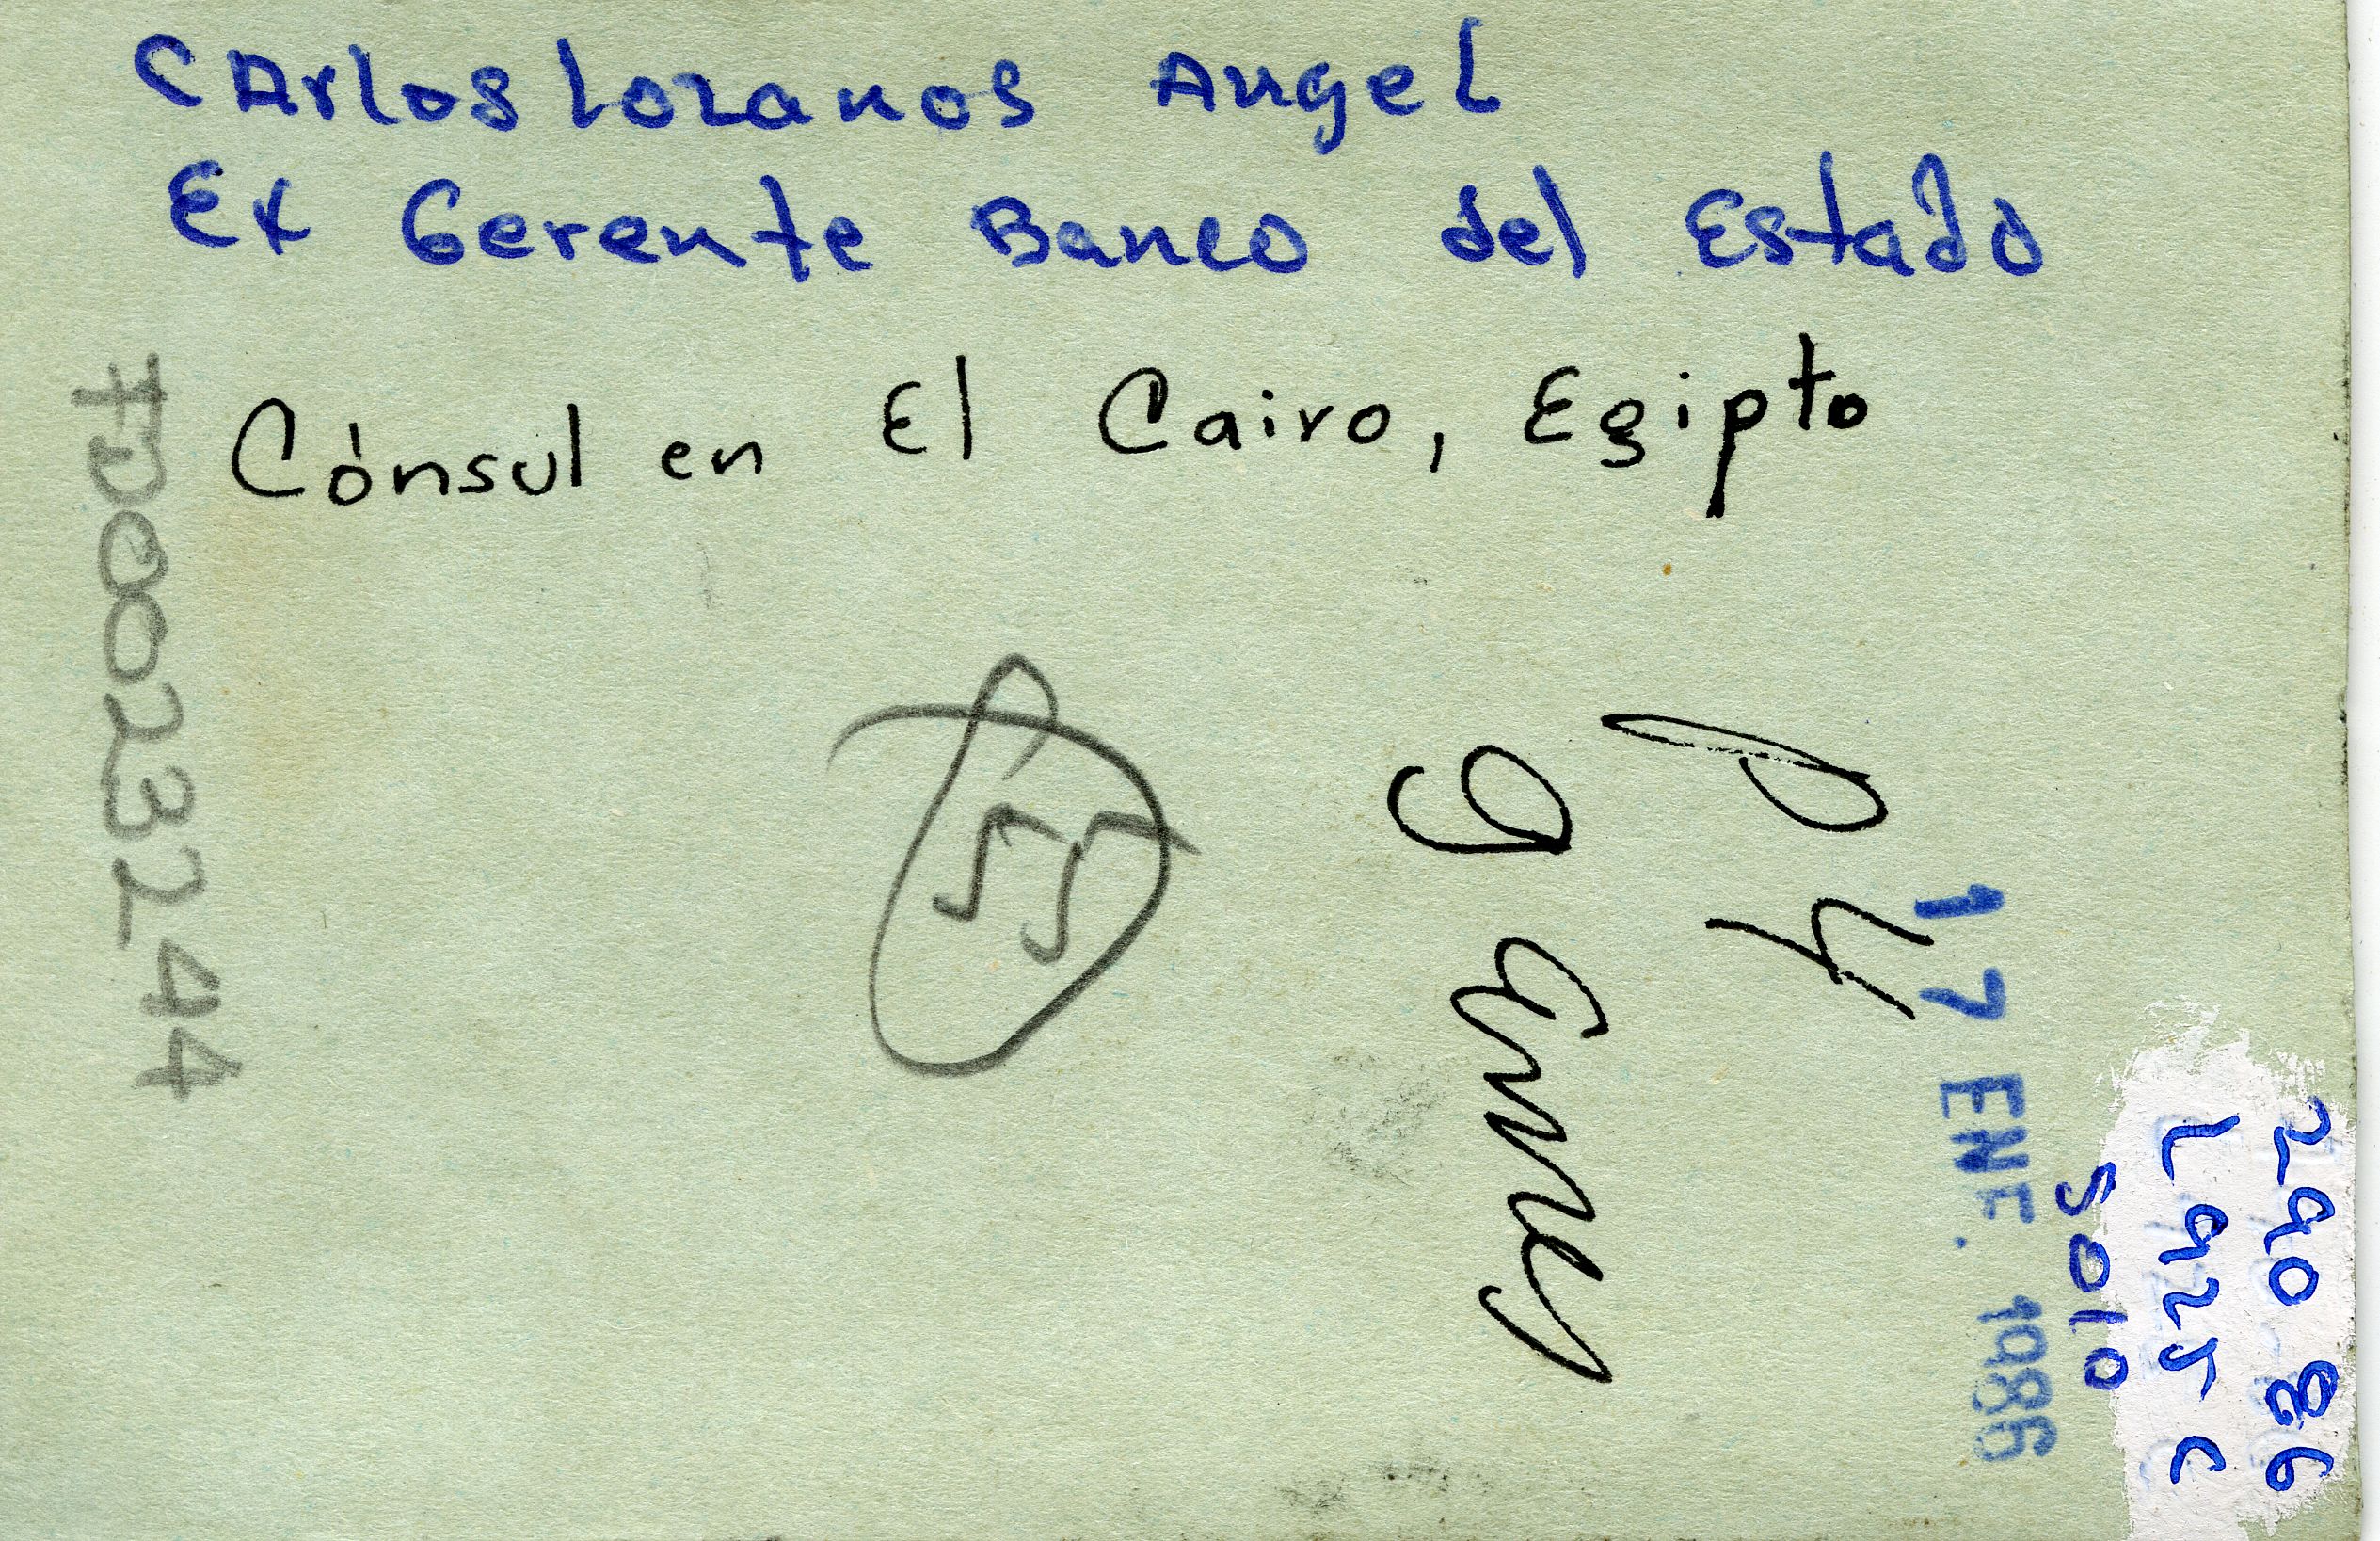 CArlos Lozanos Angel
Ex Gerente Banco del Estado
Cónsul en El Cairo, Egipto
FD0023244
55
P 4
9 ems
17 ENE. 1986
5010
L925C
290 86